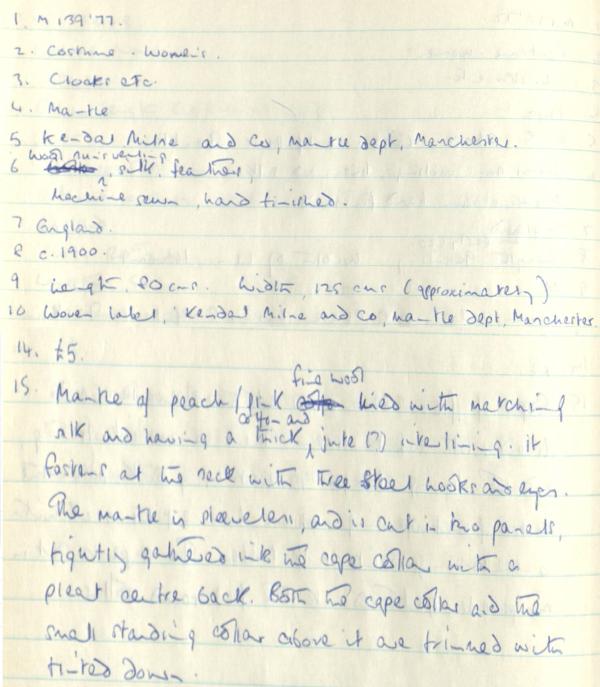 1. M 139'77.
2. Costume. Women's.
3. Cloaks etc.
4. Mantle
5 Kendal Milne and Co, mantle dept, Manchester.
wool nuns veiling
6 cotton, silk, feathers,
Machine sewn, hand finished.
7 England.
8 c. 1900.
9 Length, 80 cms. Width, 125 cms (approximately)
10 Woven label, Kendal Milne and Co, mantle dept, Manchester.
14. £5.
fine wool
15. Mantle of peach/pink cotton lined with matching
cotton and
silk and having a thick, jute (?) interlining. it
fastens at the neck with three steel hooks and eyes.
The mantle is sleeveless, and is cut in two panels,
tightly gathered into the cape collar with a
pleat centre back. Both the cape collar and the
small standing collar above it are trimmed with
tinted down.